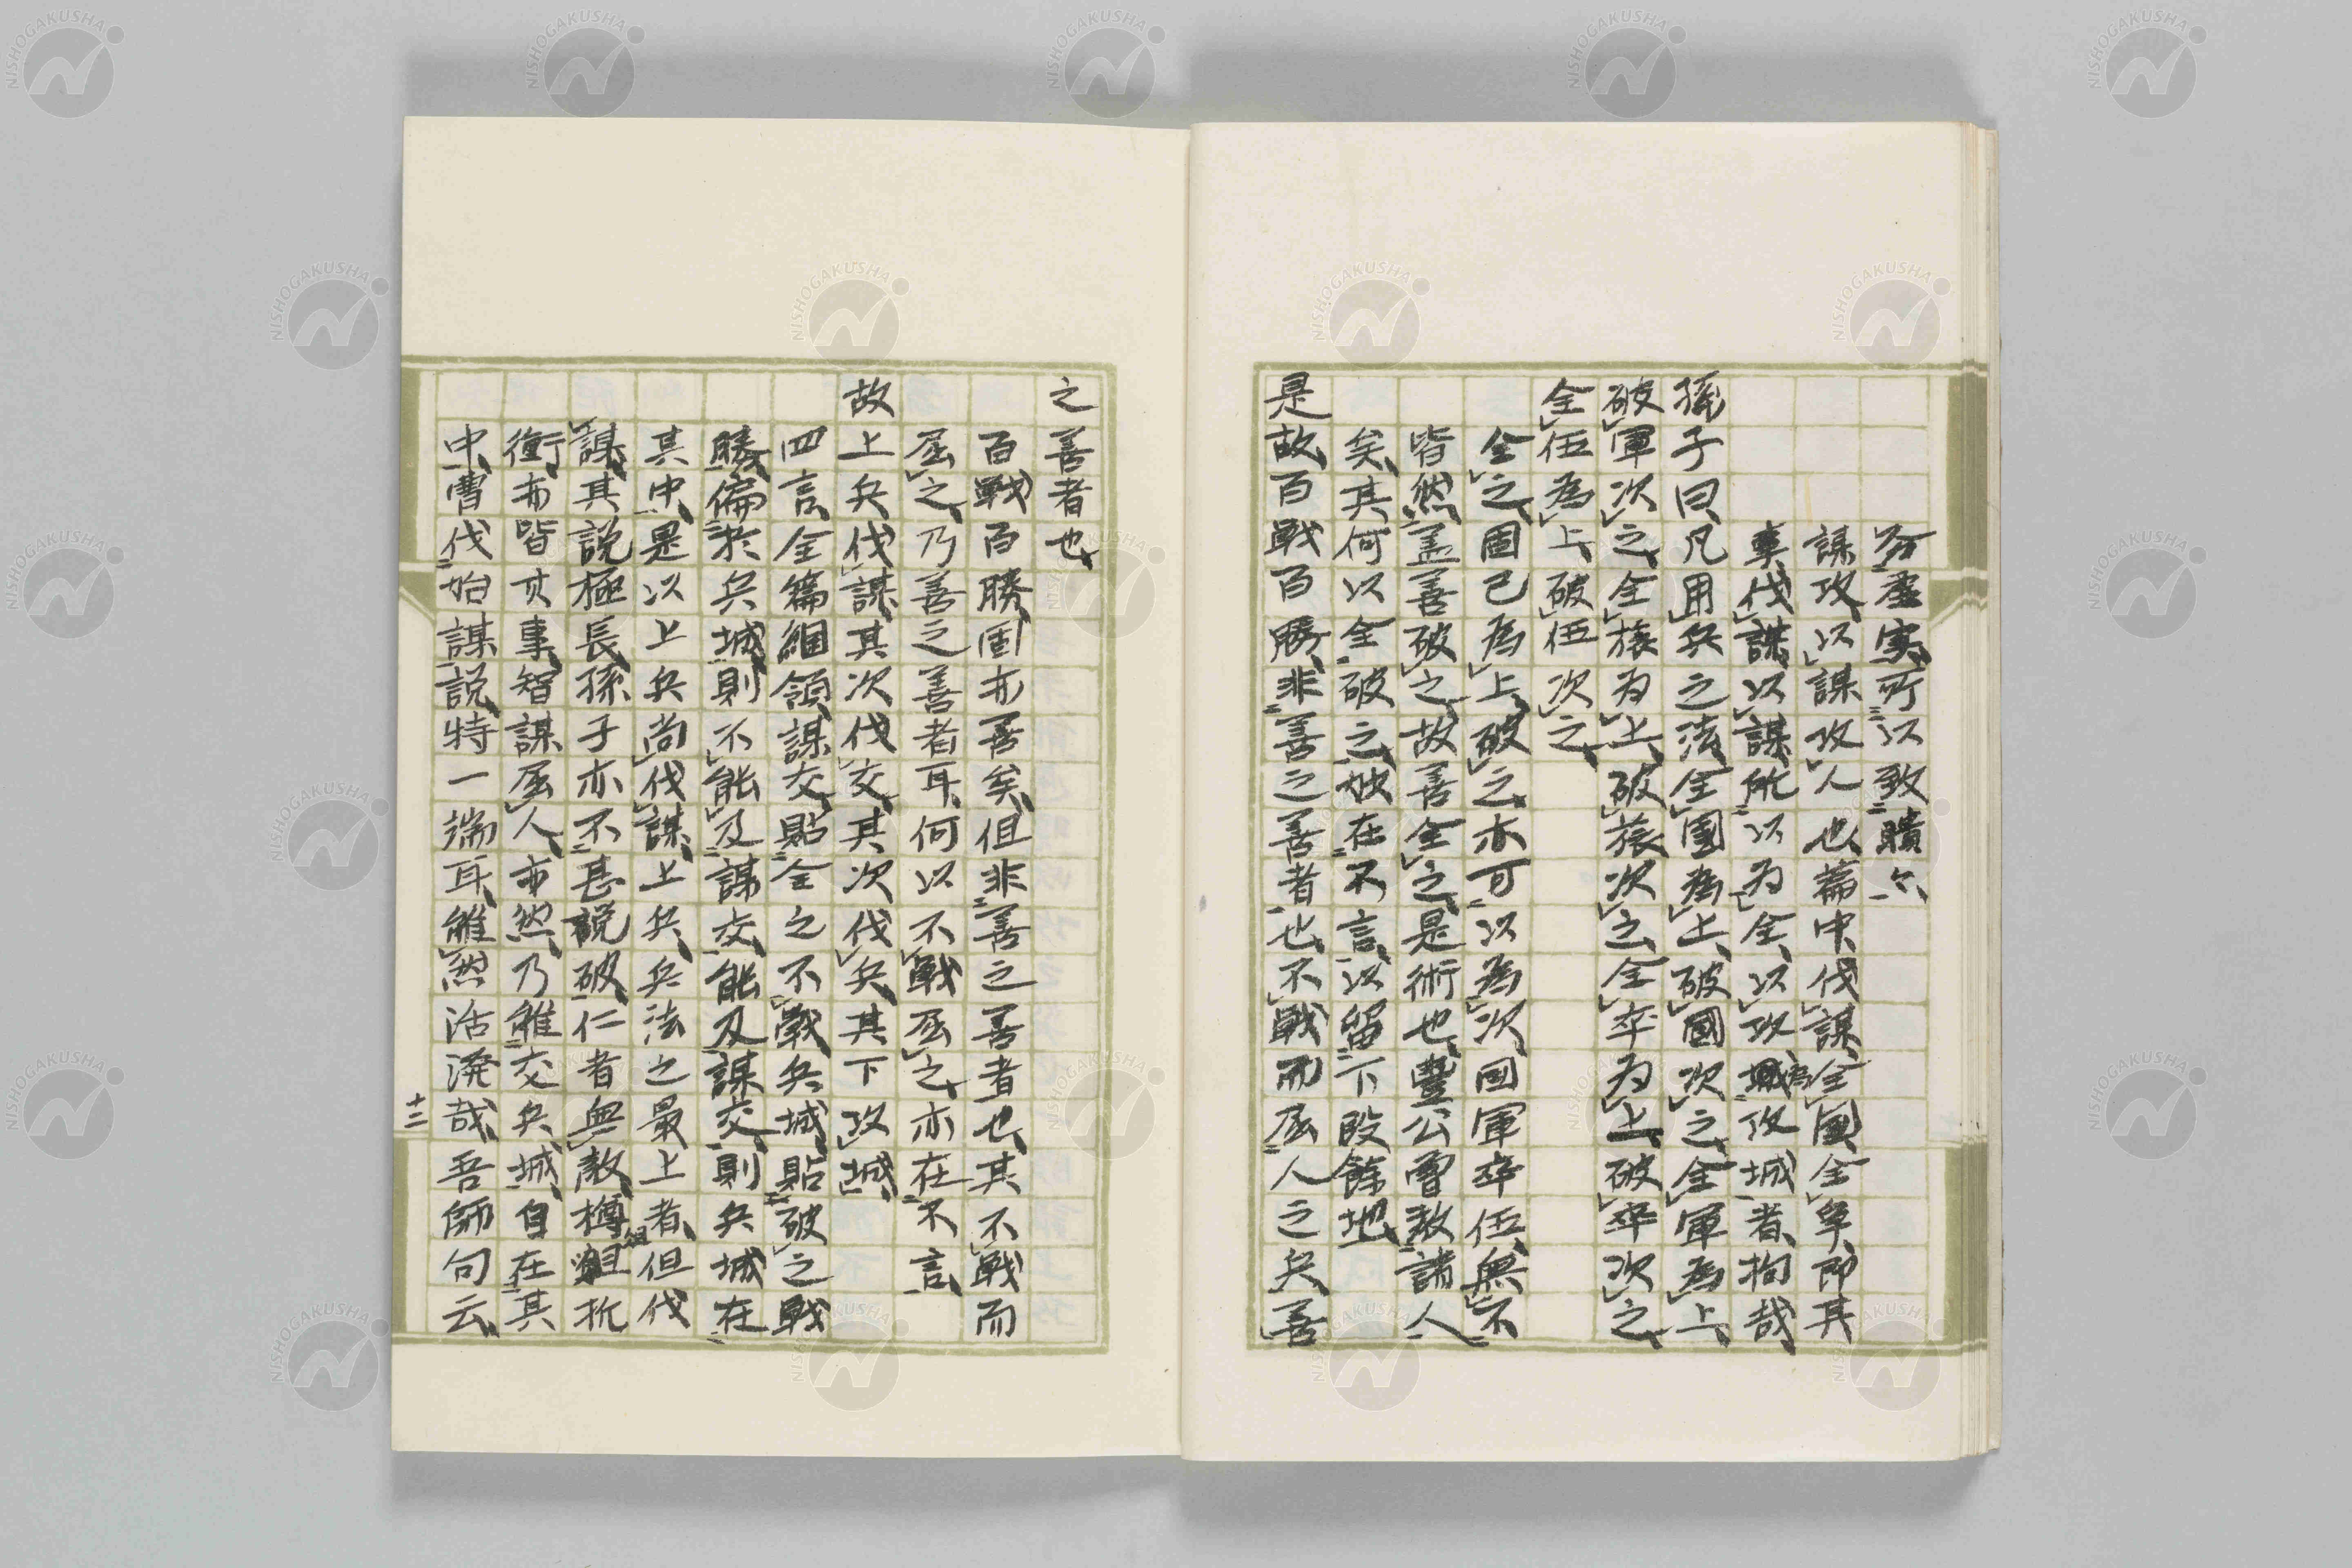 分虚実所以致贖尓
謀攻以謀攻人也篇中伐謀全国全軍即其
事伐謀以謀所以為全以攻為攻城者拘哉
孫子曰凡用兵之法全国為上破國次之全軍為上
破軍次之全旅為上破旅次之全卒為上破卒次之
全伍為上破伍次之
全之固已為上破之亦可以為次国軍卒伍無不
皆然盖善破之故善全之是術也豊公曹教諸人
矣其何以全破之在不言以留下段餘地
是故百戦百勝非善之善者也不戦而屈人之兵善
之善者也
百戦百勝固亦善矣但非善之善者也其不戦而
屈之乃善之善者耳何以不戦屈之亦在不言
故上兵伐謀其次伐交其次伐兵其下攻城
四言全篇綱領謀交貼全之不戦兵城貼破之戦
勝偏於兵城則不能及謀交能及謀交則兵城在
其中是以上兵尚伐謀上兵兵法之最上者但伐
謀其説極長孫子亦不甚説破仁者無敵樽俎折
衝亦皆其事智謀屈人亦然乃雖交兵城自在其
中曹伐始謀説特一端耳雖然活溌哉吾師句云
十二
NISHOGAKUSHA